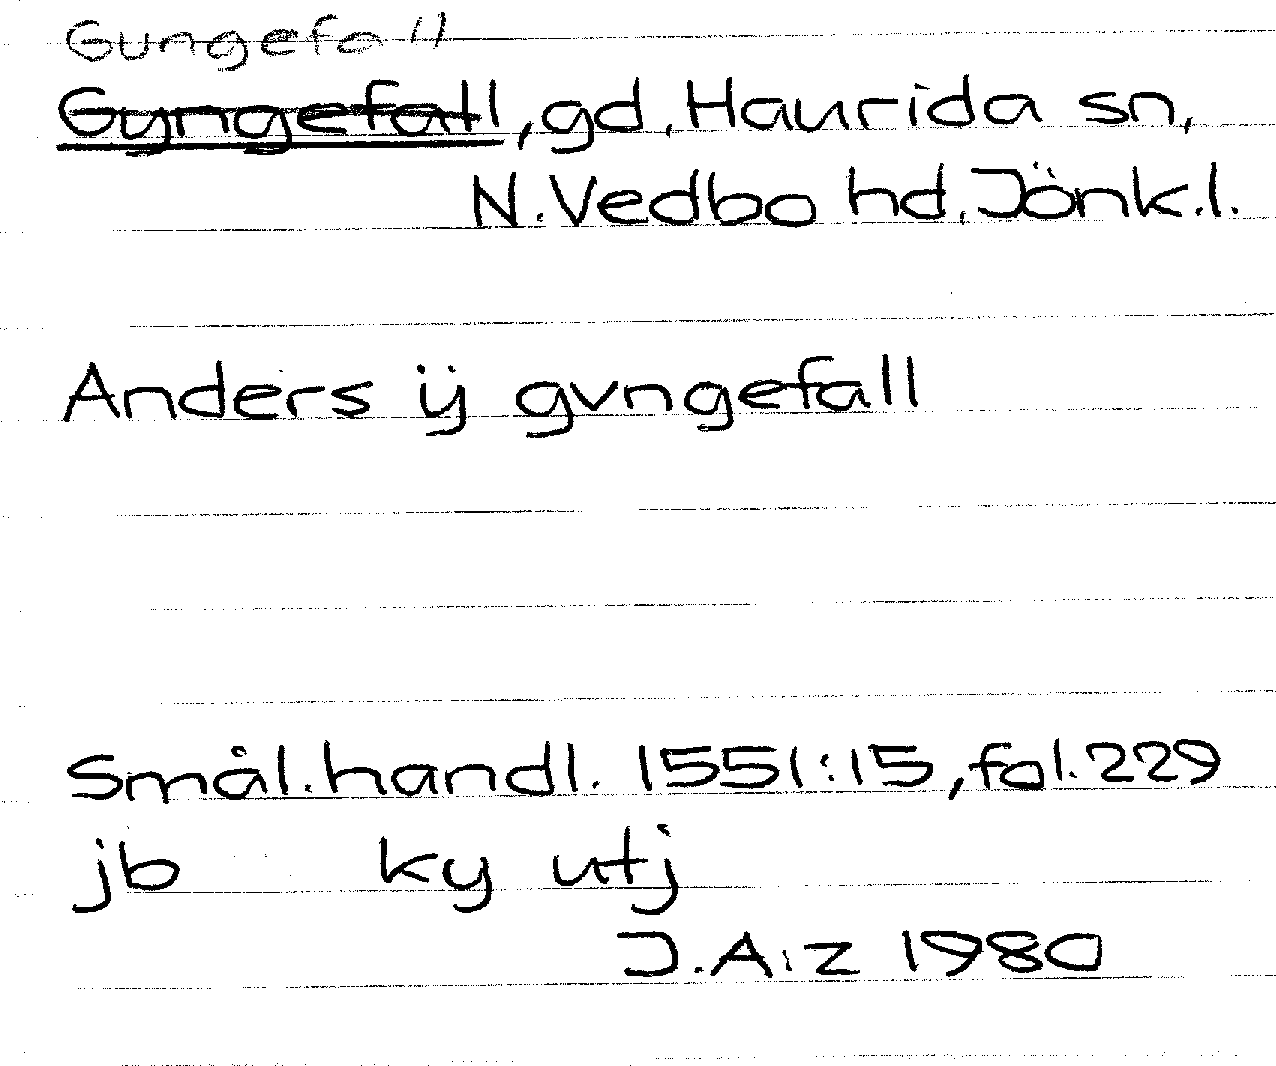 Gungefall
Gyngefall, gd, Haurida sn,
N. Vedbo hd, Jönk.l.
Anders ij gvngefall
Smål.handl. 1551:15, fol. 229
jb ky utj
J.A:z 1980